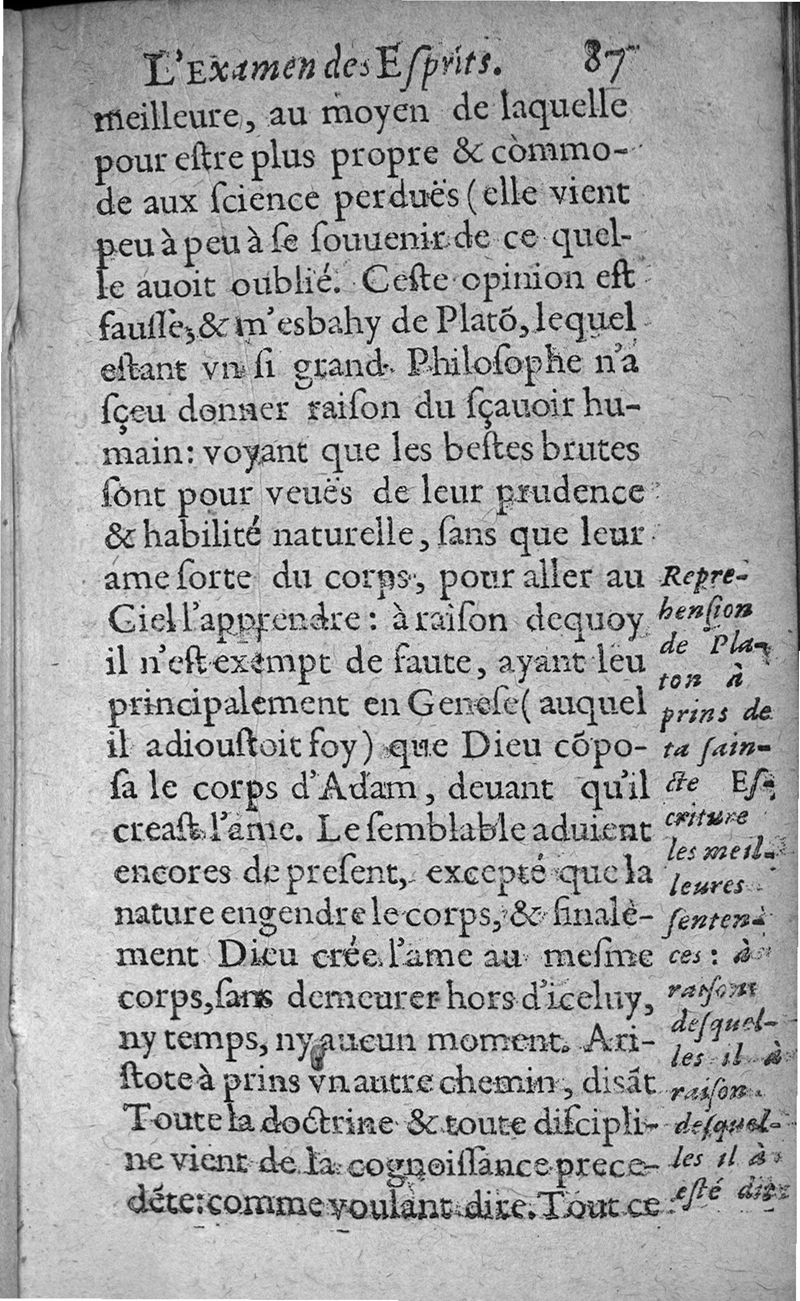 L'Examen des Eſprits. 87
meilleure, au moyen de laquelle
pour eſtre plus propre & commo-
de aux ſcience perduës (elle vient
peu à peu à ſe ſouuenir de ce quel-
le auoit oublié. Ceſte opinion eſt
fauſſe, & m'esbahy de Platõ, lequel
eſtant vn ſi grand Philoſophe n'a
ſçeu donner raiſon du ſçauoir hu-
main: voyant que les beſtes brutes
ſont pour veuës de leur prudence
& habilité naturelle, ſans que leur
ame ſorte du corps, pour aller au
Ciel l'apprendre: à raiſon dequoy
il n'eſt exempt de faute, ayant leu
principalement en Geneſe (auquel
il adiouſtoit foy) que Dieu cõpo-
ſa le corps d'Adam, deuant qu'il
creaſt l'ame. Le ſemblable aduient
encores de preſent, excepté que la
nature engendre le corps, & finale-
ment Dieu crée l'ame au meſme
corps, ſans demeurer hors d'iceluy,
ny temps, ny aucun moment. Ari-
ſtote à prins vn autre chemin, diſãt
Toute la doctrine & toute diſcipli-
ne vient de la cognoiſſance prece-
dẽte: comme voulant dire. Tout ce
Repre-
henſion
de Pla-
ton à
prins de
ta ſain-
cte Eſ-
criture
les meil-
leures
ſenten-
ces: à
raiſon
deſquel-
les il à
raiſon
deſquel-
les il à
eſté dit